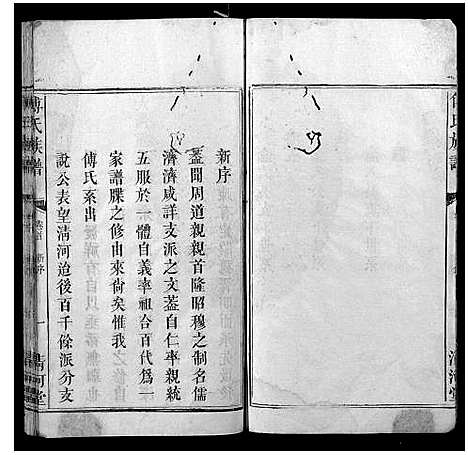 新序
蓋聞周道親親首隆昭穆之制名儒
濟濟咸詳支派之文蓋自仁率親統
五服於一體自義率祖合百代爲一
家譜牒之修由來尙矣惟我
傅氏系出
說公表望清河迨後百千餘派分支
傅氏族譜
新序
一
清河堂
氏族譜
清河堂